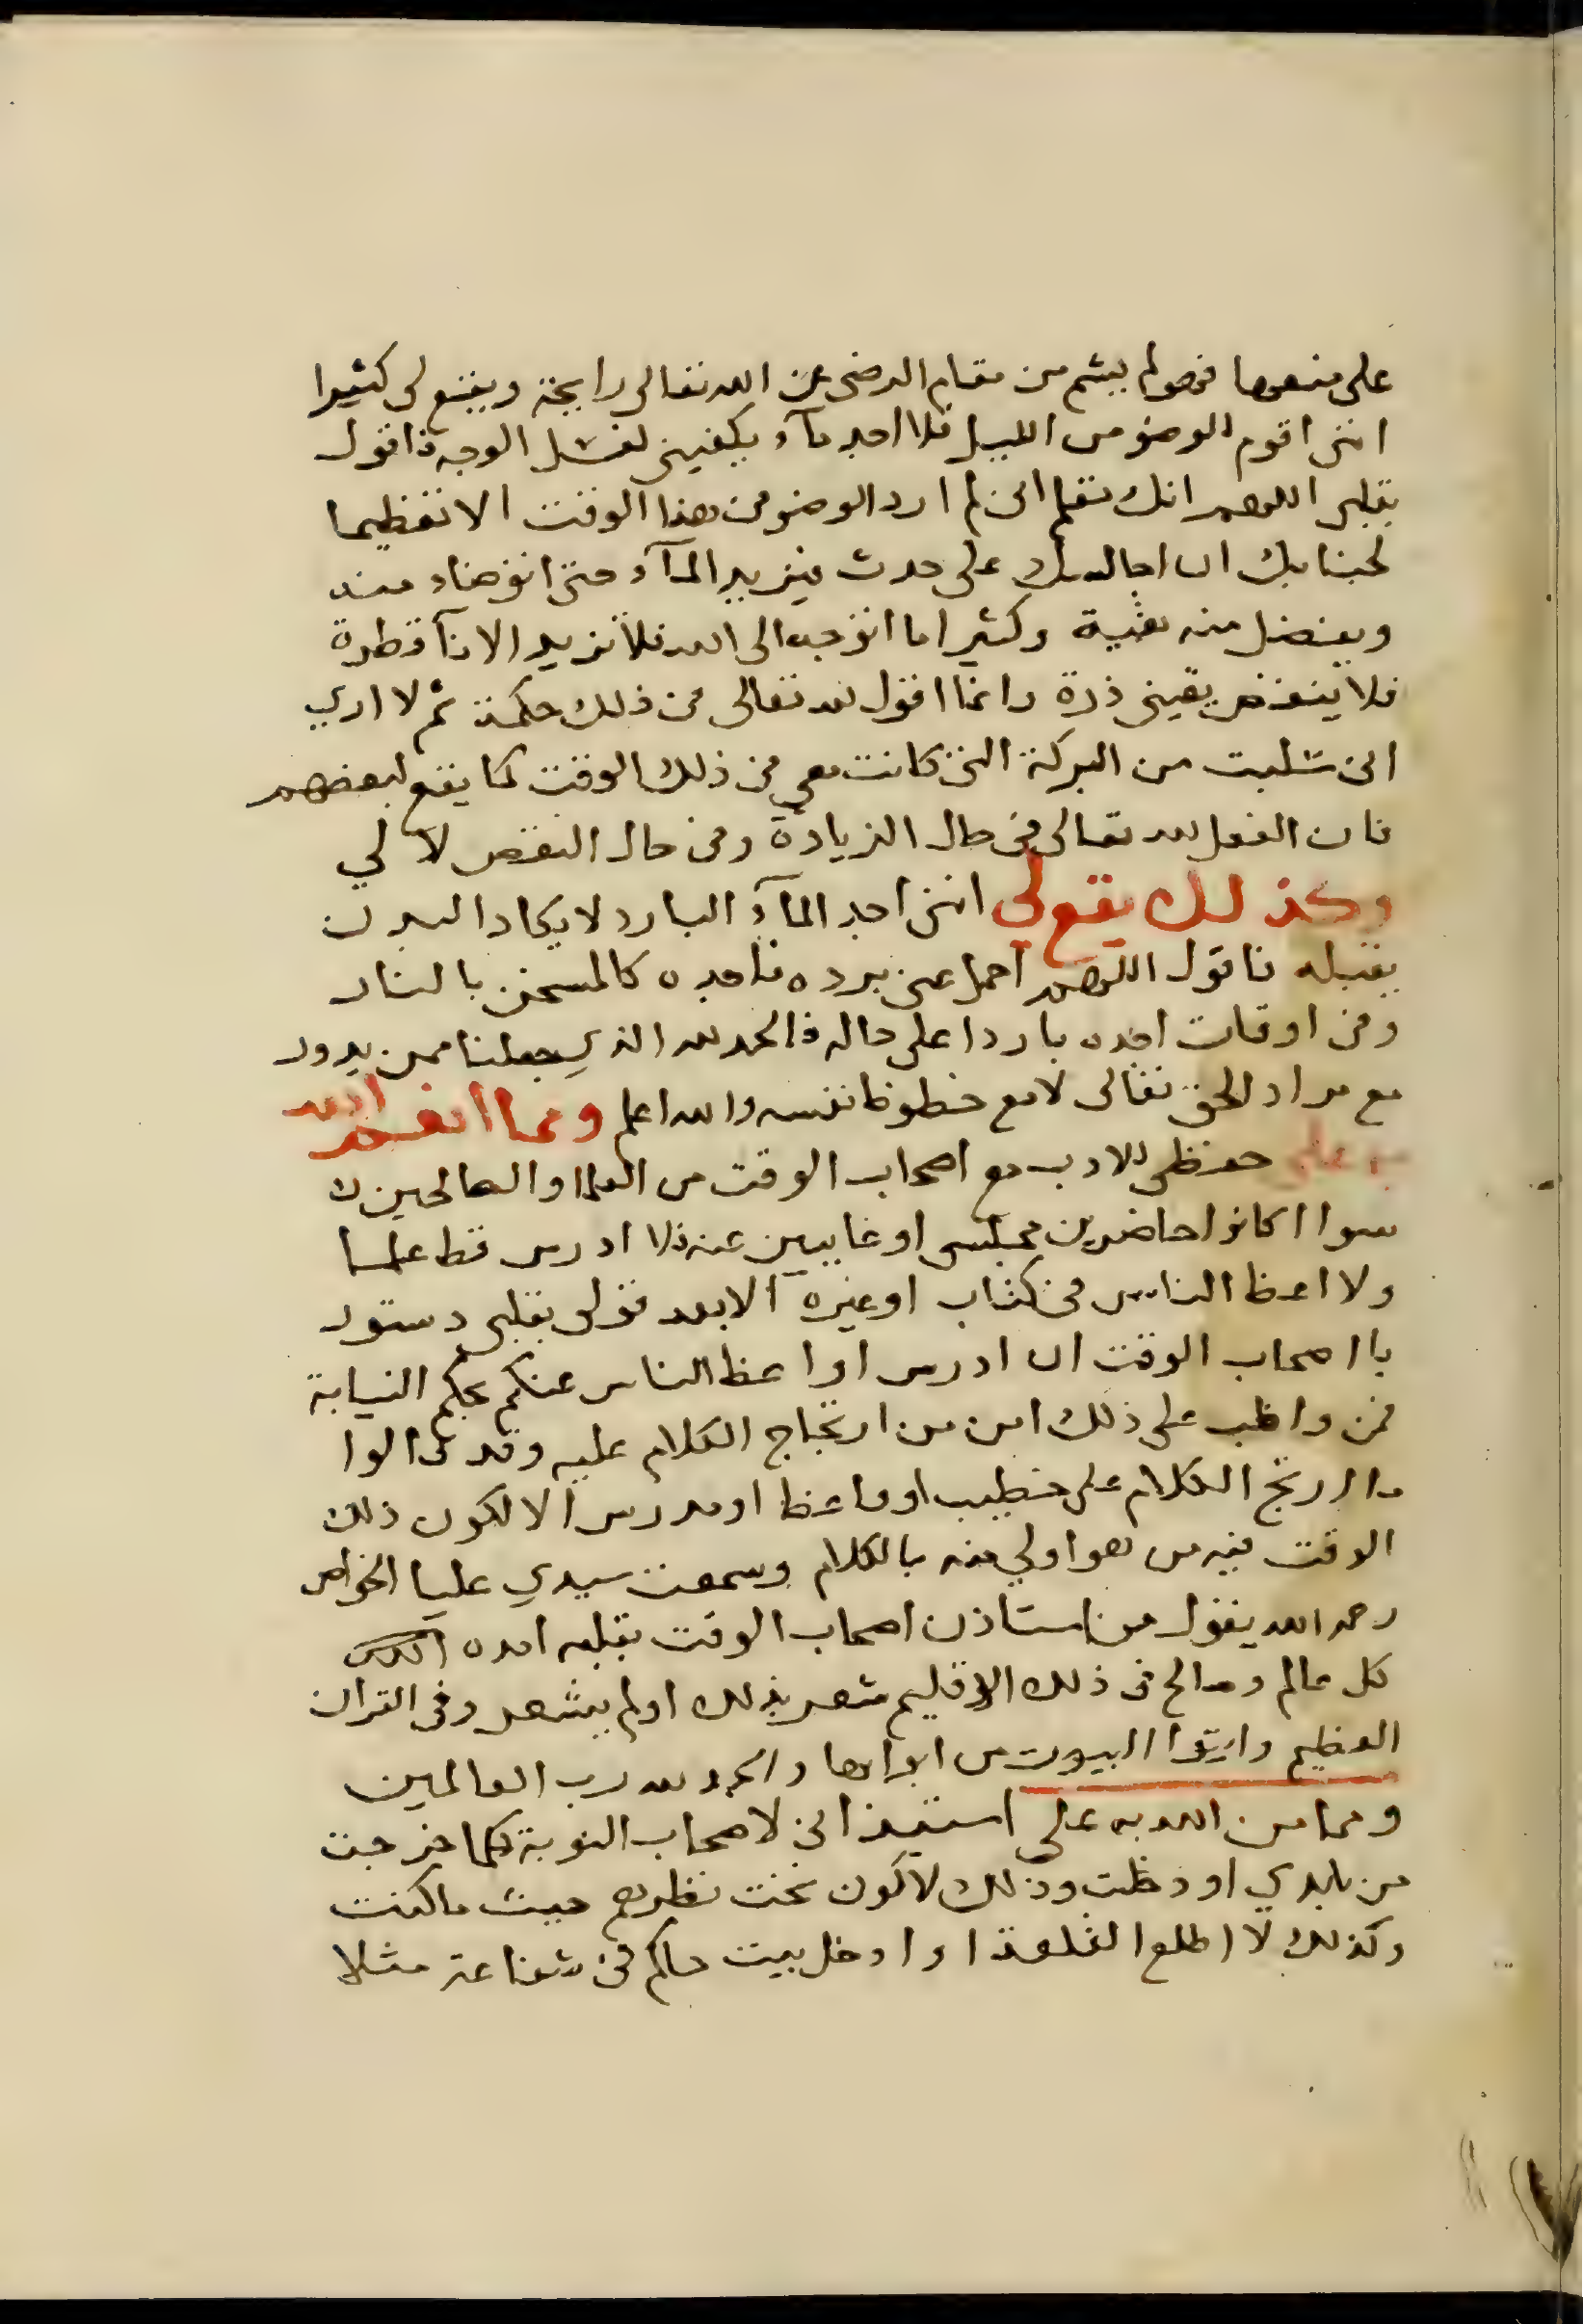 على منعها فهو لم يشم من مقام الرضى عن الله تعالى رايحة ويقع لي كثيرا
انني اقوم للوضو من الليل فلا اجد مآء يكفيني لغسل الوجه فاقول
بقلبي اللهم انك تعلم اني لم ارد الوضو في هذا الوقت الا تعظيما
لجنابك ان اجالسك على حدث فيزيد المآء حتى اتوضاء منه
ويفضل منه بقية وكثيرا ما اتوجه الى الله فلا تزيد الانآ قطرة
فلا ينقص يقيني ذرة وانما اقول لله تعالى في ذلك حكمة ثم لا ارى
اني سلبت من البركة التي كانت معي في ذلك الوقت كما يقع لبعضهم
فان الفعل لله تعالى في حال الزيادة وفي حال النقص لا لي
وكذلك يقع لي انني اجد المآء البارد لا يكاد البدن
يقبله فاقول اللهم احمل عني برده فاجده كالمسخن بالنار
وفي اوقات اجده باردا على حاله فالحمد لله الذي جعلنا ممن يدور
مع مراد الحق تعالى لا مع حظوظ نفسه والله اعلم ومما انعم الله
به على حفظي للادب مع اصحاب الوقت من العلما والصالحين
سوا اكانوا حاضرين مجلسي او غايبين عنه فلا ادرس قط علما
ولا اعظ الناس في كتاب او غيره الا بعد قولي بقلبي دستور
يا اصحاب الوقت ان ادرس او اعظ الناس عنكم بحكم النيابة
فمن واظب على ذلك امن من ارتجاج الكلام عليه وقد قالوا
ما ارتج الكلام على خطيب او واعظ او مدرس الا لكون ذلك
الوقت فيه من هو اولي منه بالكلام وسمعت سيدي عليا الخواص
رحمه الله يقول من استاذن اصحاب الوقت بقلبه امده
كل عالم وصالح في ذلك الاقليم شعر بذلك او لم يشعر وفي القران
العظيم واتوا البيوت من ابوابها والحمد لله رب العالمين
ومما من الله به على استيذاني لاصحاب النوبة كلما خرجت
من بلدي او دخلت وذلك لاكون تحت نظرهم حيث ما كنت
وكذلك لا اطلع القلعة او ادخل بيت حاكم في شفاعة مثلا